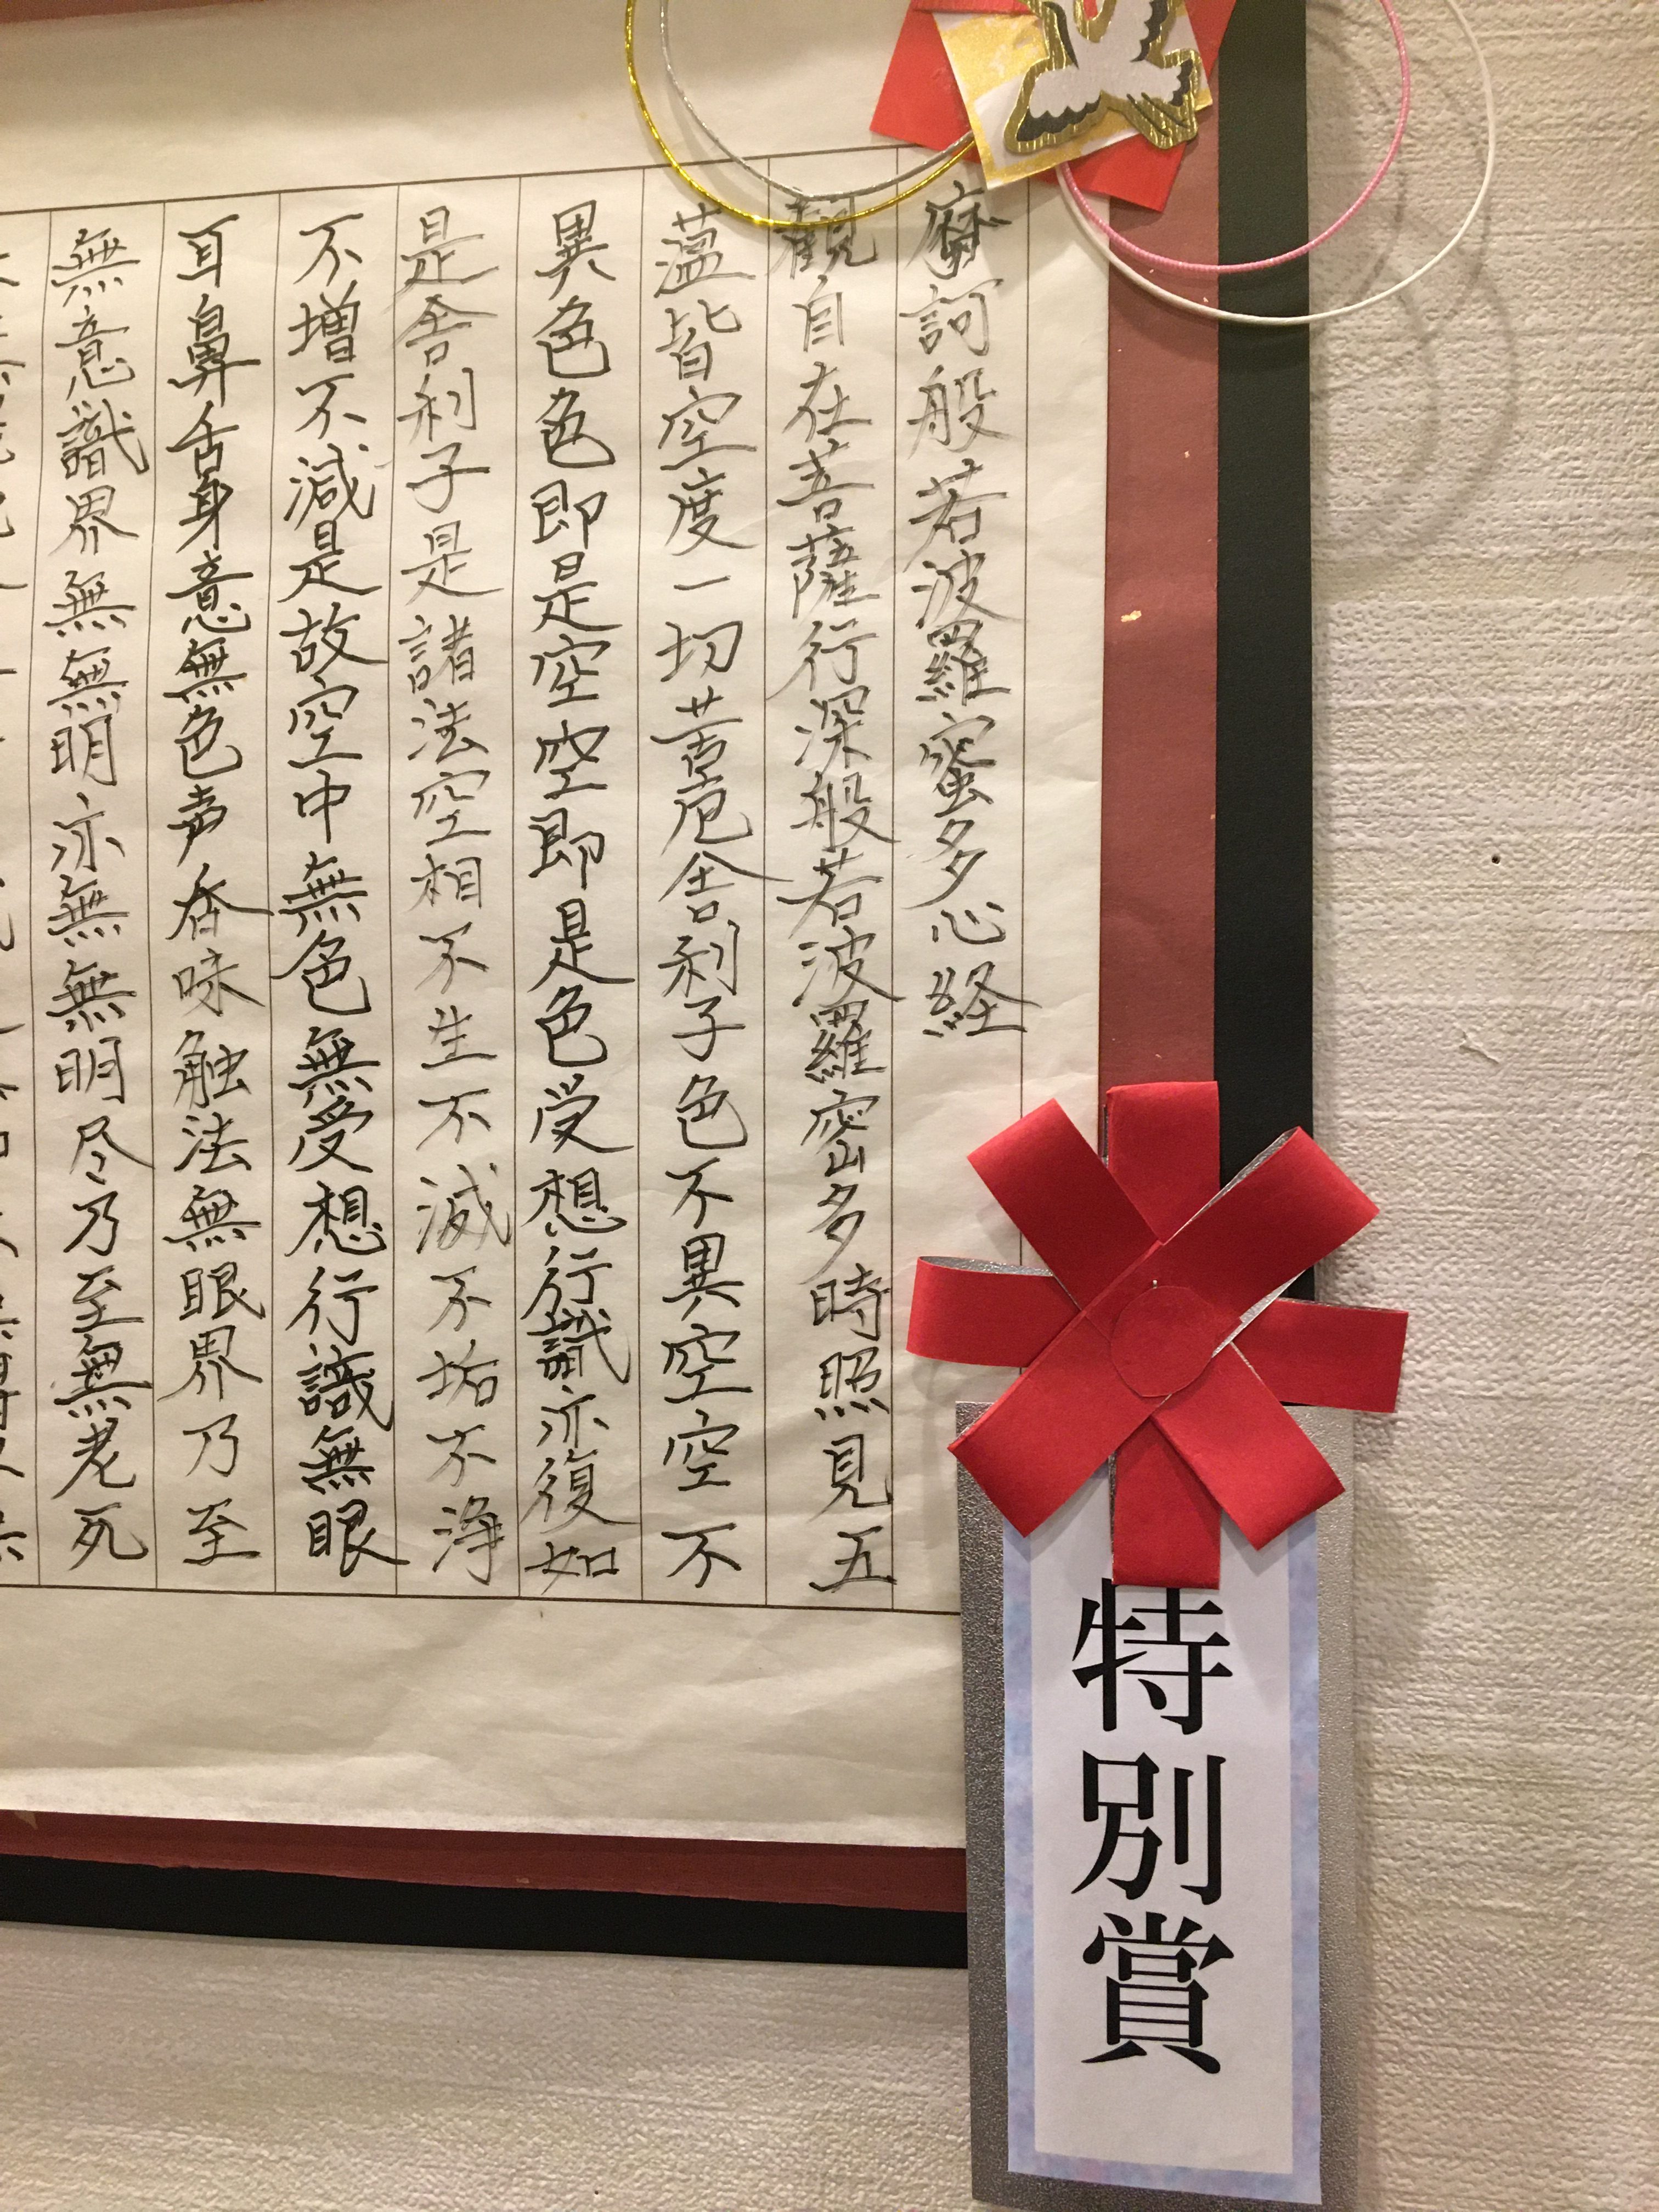 摩訶般若波羅蜜多心経
観自在菩薩行深般若波羅密多時照見五
蘊皆空度一切苦厄舎利子色不異空空不
異色色即是空空即是色受想行識亦復如
是舎利子是諸法空相不生不滅不垢不浄
不増不減是故空中無色無受想行識無眼
耳鼻舌身意無色声香味触法無眼界乃至
無意識界無無明亦無無明尽乃至無老死
特別賞